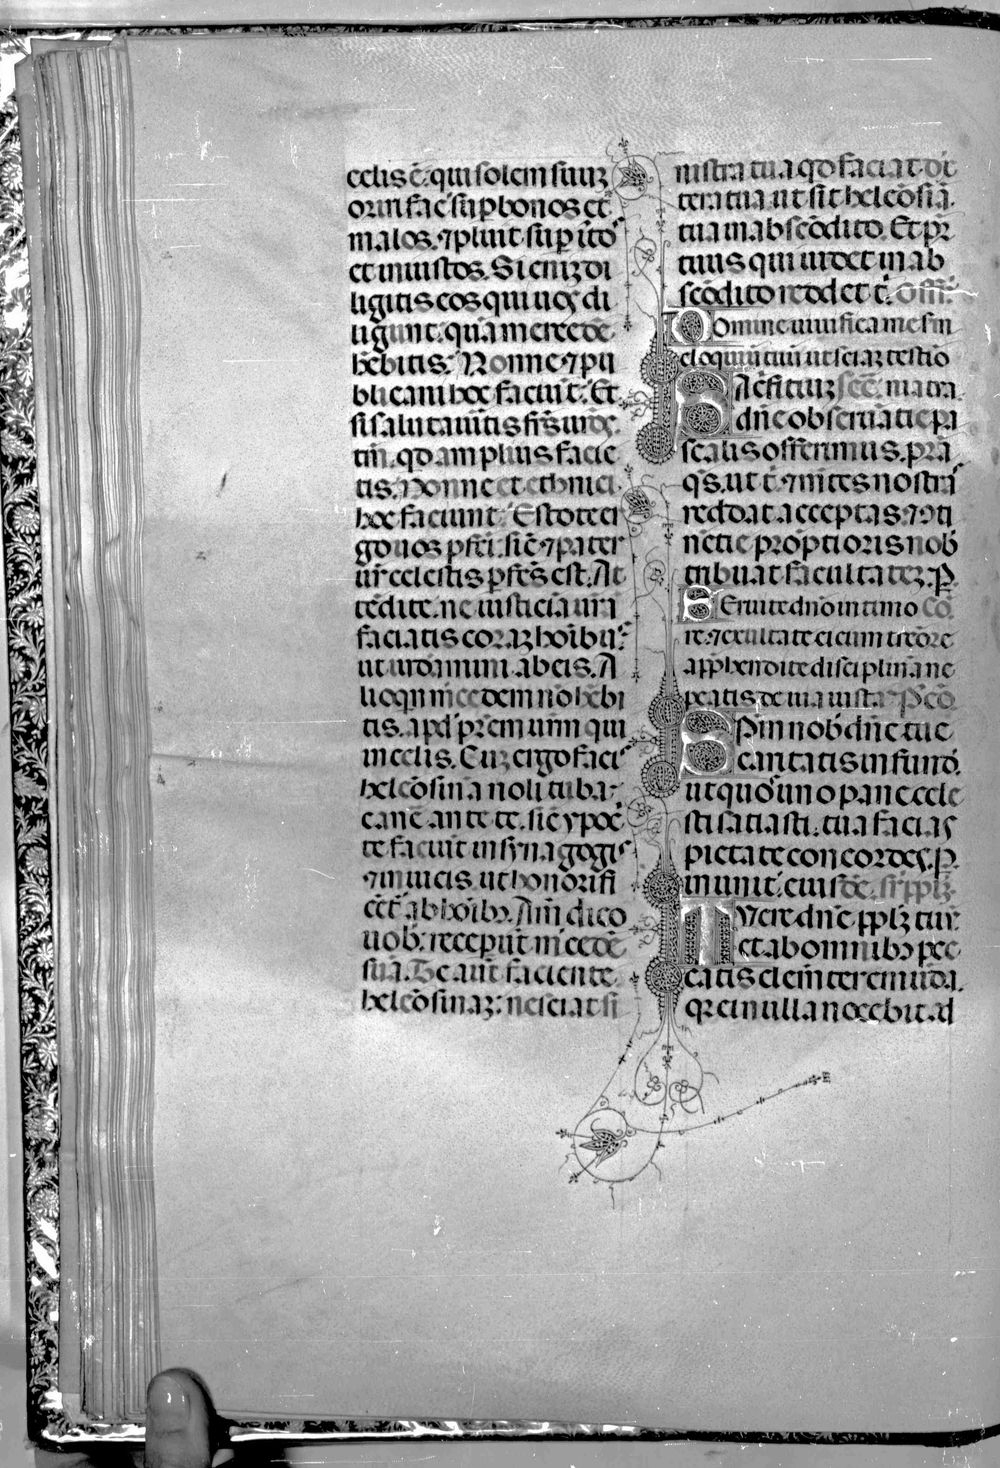 celis ē. qui solem suuȝ
oriri fac̄ sup bonos et
malos. ⁊ pluit sup iūstos
et iniustos. Si eniȝ di
ligitis eos qui uoꝫ di
ligunt. quā mercedē
hēbitis: Nonne ⁊ pu
blicani hoc faciūt. Et
si salutauītis fr̄s ur̄oꝫ.
tm̄. qd amplius facie
tis. Nonne et ethnici
hoc faciunt. Estote er
go uos ꝑfēi. sic̄ ⁊ pater
ur̄ celestis ꝑfēs est. At
tēdite. ne iusticiā urā̄
faciatis coraȝ hoībus.
ut uideāmini. ab eis. A
lioqn̄ m̄cedem nō hēbi
tis. apd̄ pr̄em ur̄m qui
in celis. Cuȝ ergo facis
helēosinā noli tuba
canē ante te. sic̄ ypoc̄
te faciūt in synagogis
⁊ in uicis. ut honorifi
cēt̄ ab hoībꝫ. Am̄ dico
uob̄. recepūt m̄cedē
suā. Te aūt faciente.
helēosinaȝ: nesciat si
nistra tua qd faciat dex
tera tua ut sit helēosiā.
tua in abscōdito. Et pr̄
tuus qui uidet in ab
scōdito reddet t. Off.
Domine uiuifica me sm̄
eloquiū tuū ut sciaȝ testīo
Sac̄ficiuȝ
dn̄e obseruātie pa
scalis offerimus. prā
qs. ut ⁊ mētes nostrī
reddat acceptas. ⁊ ɔti
nētie prōptioris nob̄
tribuat facultateȝ. P.
Seruite dn̄o in timo Cō.
re. ⁊ exultate ei cum tremōre
apprhendite disciplinā ne
peatis de uia iusta. Pcō.
Spm̄ nob̄ dn̄e tue
caritatis infunde.
ut quos uno pane cele
sti satiasti. tua facias
pietate concordeꝫ. P.
in unit. eiusdē. sr̄ ppl̄ȝ.
Tuere dn̄e ppl̄ȝ tuū
et ab omnibꝫ pec
catis clem̄ter emūda.
qꝛ ei nulla nocebit ad